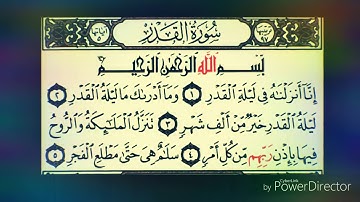 سُورَةُ الْقَدْرِ
بِسْمِ اللَّهِ الرَّحْمَٰنِ الرَّحِيمِ
إِنَّا أَنزَلْنَاهُ فِي لَيْلَةِ الْقَدْرِ ١ وَمَا أَدْرَاكَ مَا لَيْلَةُ الْقَدْرِ ٢
لَيْلَةُ الْقَدْرِ خَيْرٌ مِّنْ أَلْفِ شَهْرٍ ٣ تَنَزَّلُ الْمَلَائِكَةُ وَالرُّوحُ
فِيهَا بِإِذْنِ رَبِّهِم مِّن كُلِّ أَمْرٍ ٤ سَلَامٌ هِيَ حَتَّىٰ مَطْلَعِ الْفَجْرِ ٥
CyberLink
by PowerDirector